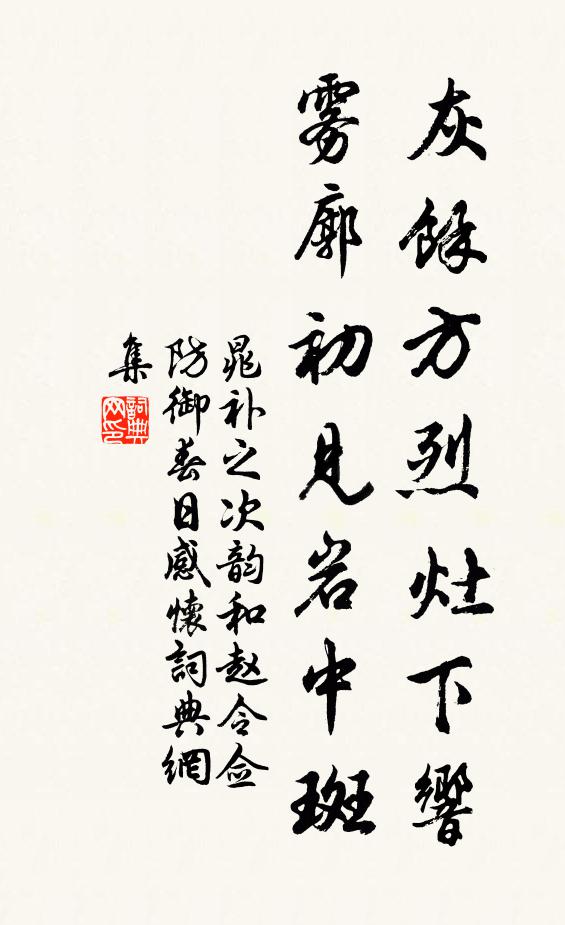 灰餘方烈灶下響
雾廓初見岩中斑
晁补之次韵和赵令佥
防御春日感懷詞典網
集
詞典
网印